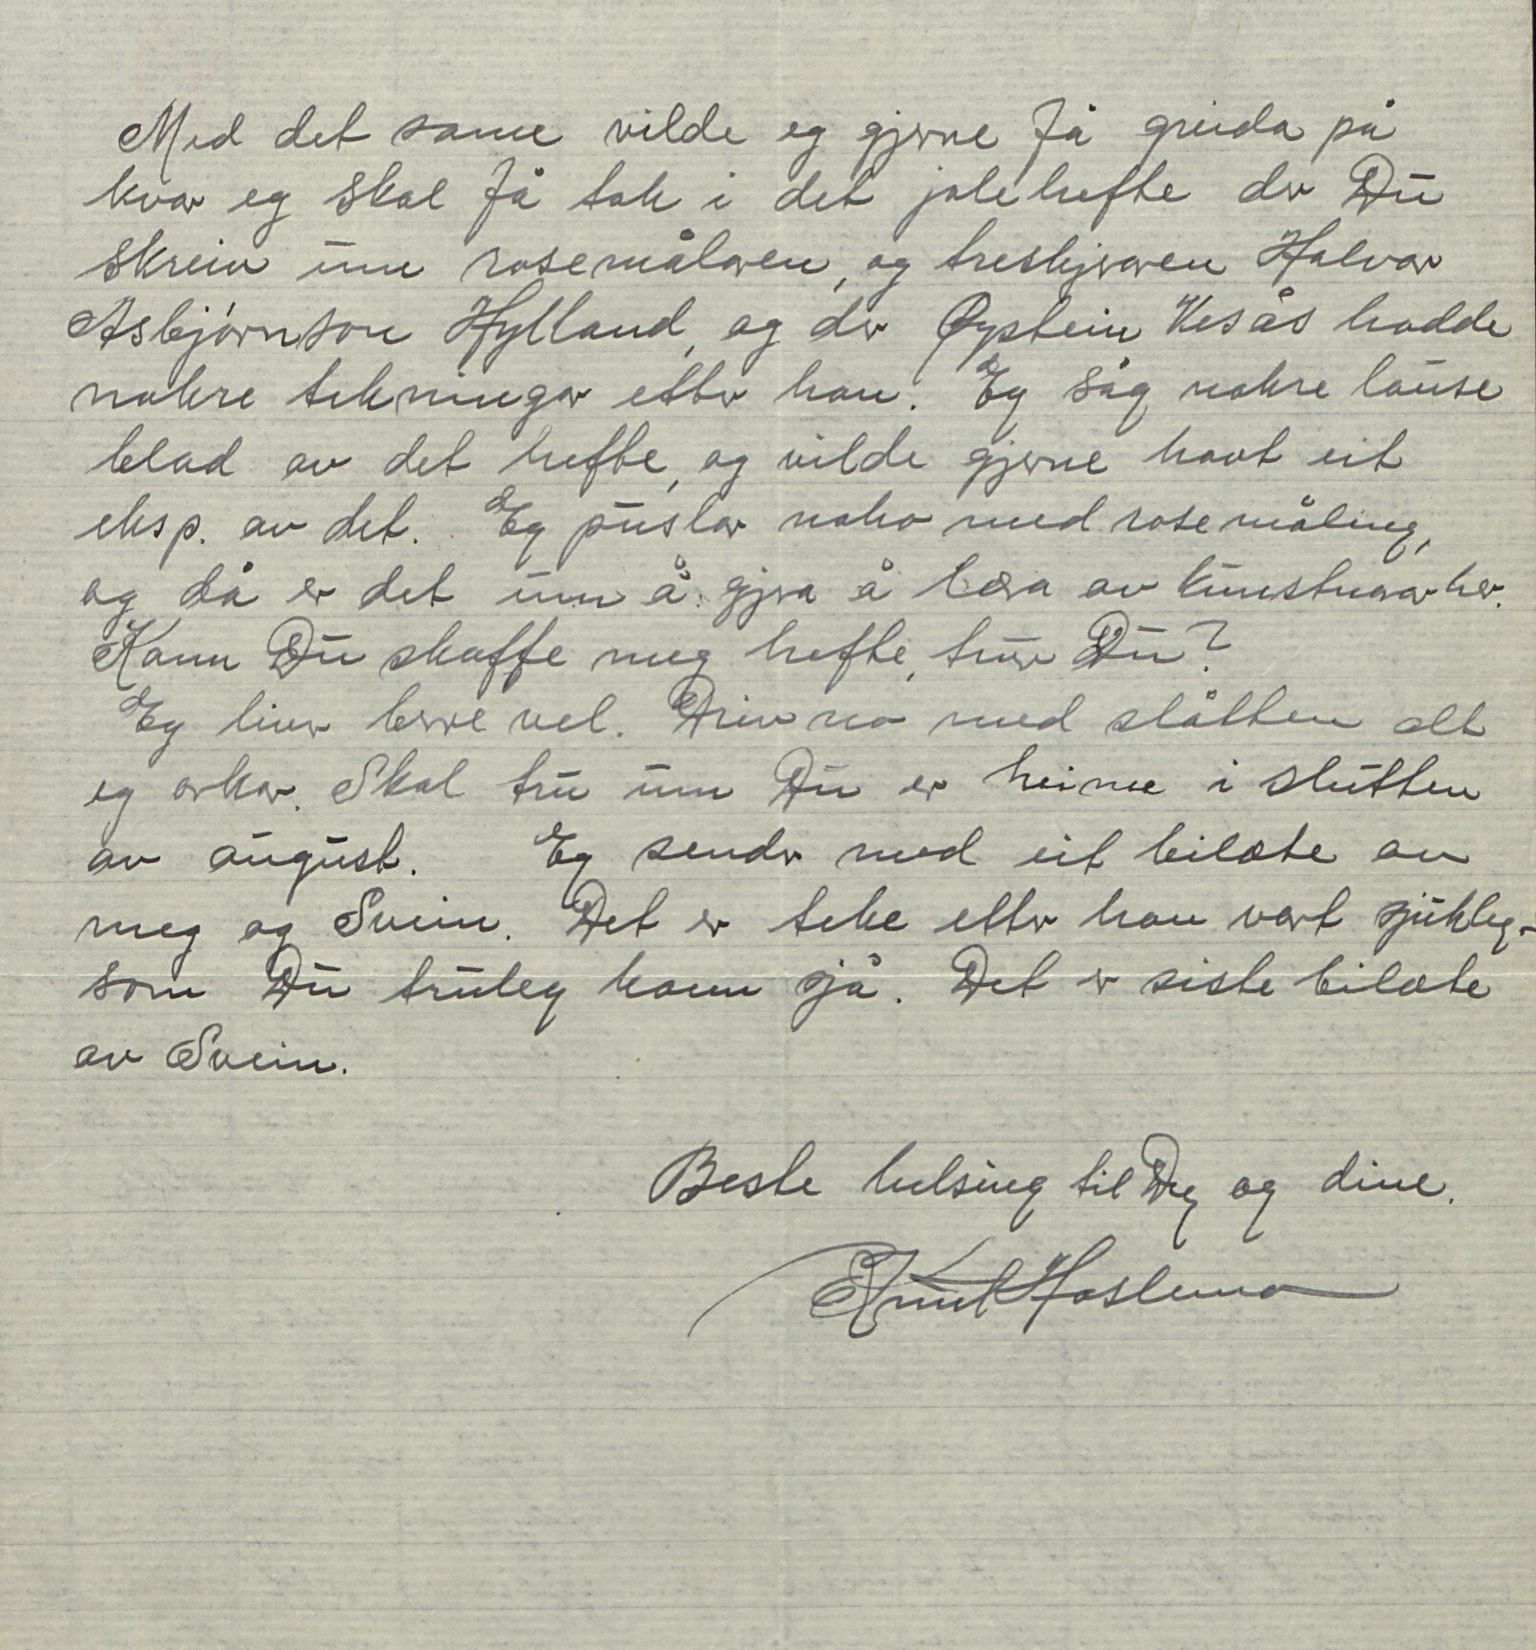 Med det same vilde eg gjerne få greida på
kvar eg skal få tak i det jolehefte der Du
skreiv um rosemålaren, og treskjeraren Halvor
Asbjørnson Hylland, og der Øystein Vesås hadde
nokre tekningar etter han. Eg såg nokre lause
blad av det hefte, og vilde gjerne havt eit
eksp. av det. Eg puslar noko med rosemåling,
og då er det um å gjera å læra av kunstnarar her.
Kann Du skaffe meg hefte, trur Du?
Eg liver berre vel. Driv no med slåtten alt
eg orkar. Skal tru um Du er heime i slutten
av august. Eg sender med eit bilæte av
meg og Svein. Det er teke etter han vart sjukleg-
som Du truleg kann sjå. Det er siste bilæte
av Svein.
Beste helsing til Deg og dine.
Knut Hoslemo